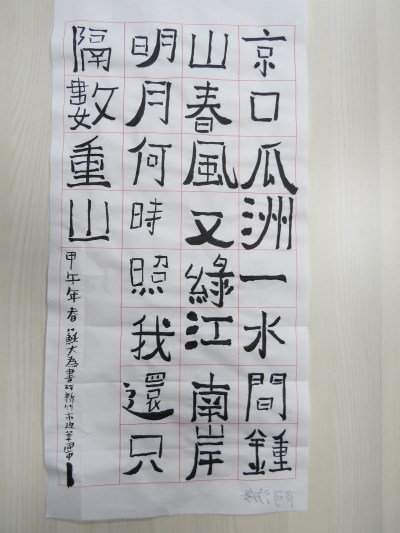 京口瓜洲一水間鍾
山春風又綠江南岸
明月何時照我還只
隔數重山
甲午年春蘇大為書於新竹市